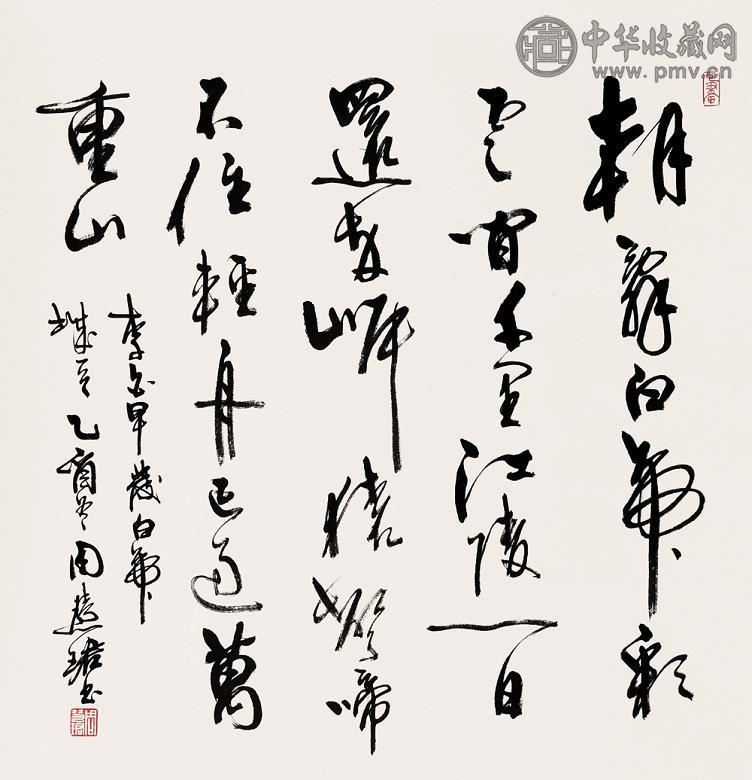 中华收藏网
www.pmv.cn
朝辭白帝彩
雲間千里江陵一日
還兩岸猿聲啼
不住輕舟已過萬
重山
李白早發白帝
城 乙酉冬周慧珺書